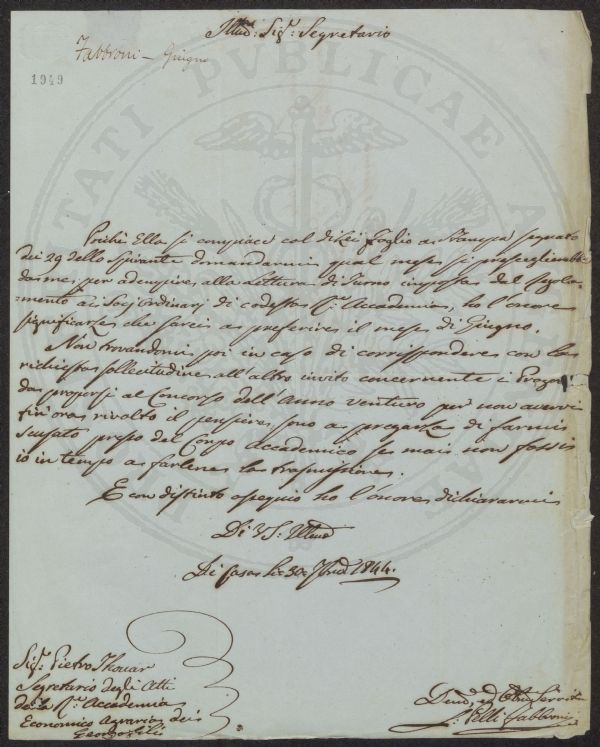 Illmo: Sigr: Segretario
Fabbroni - Giugno
1949
PVBLICAE
Poichè Ella si compiace col di Lei foglio a stampa segnato
dei 29 dello spirante domandarmi qual mese si presceglierebbe
da me, per adempire alla Lettura di Turno imposta dal Regola-
mento ai Socj Ordinarj di codesta R.a Accademia, ho l'onore
significarle che sarei a preferire il mese di Giugno.
Non trovandomi poi in caso di corrispondere con la
richiesta sollecitudine all'altro invito concernente i
da proporsi al Concorso dell'Anno venturo per non avervi
fin'ora rivolto il pensiere, sono a pregarla di farmi
scusato presso del Corpo accademico se mai non fossi
io in tempo a farlene la trasmissione.
E con distinto ossequio ho l'onore dichiararmi
Di VS: Illma
Di Casa li 30 1844.
Sigr. Pietro Thouar
Segretario degli Atti
della R.a Accademia
Economico Agraria dei
Georgofili
Devmo, ed Servit
Pelli Fabbroni